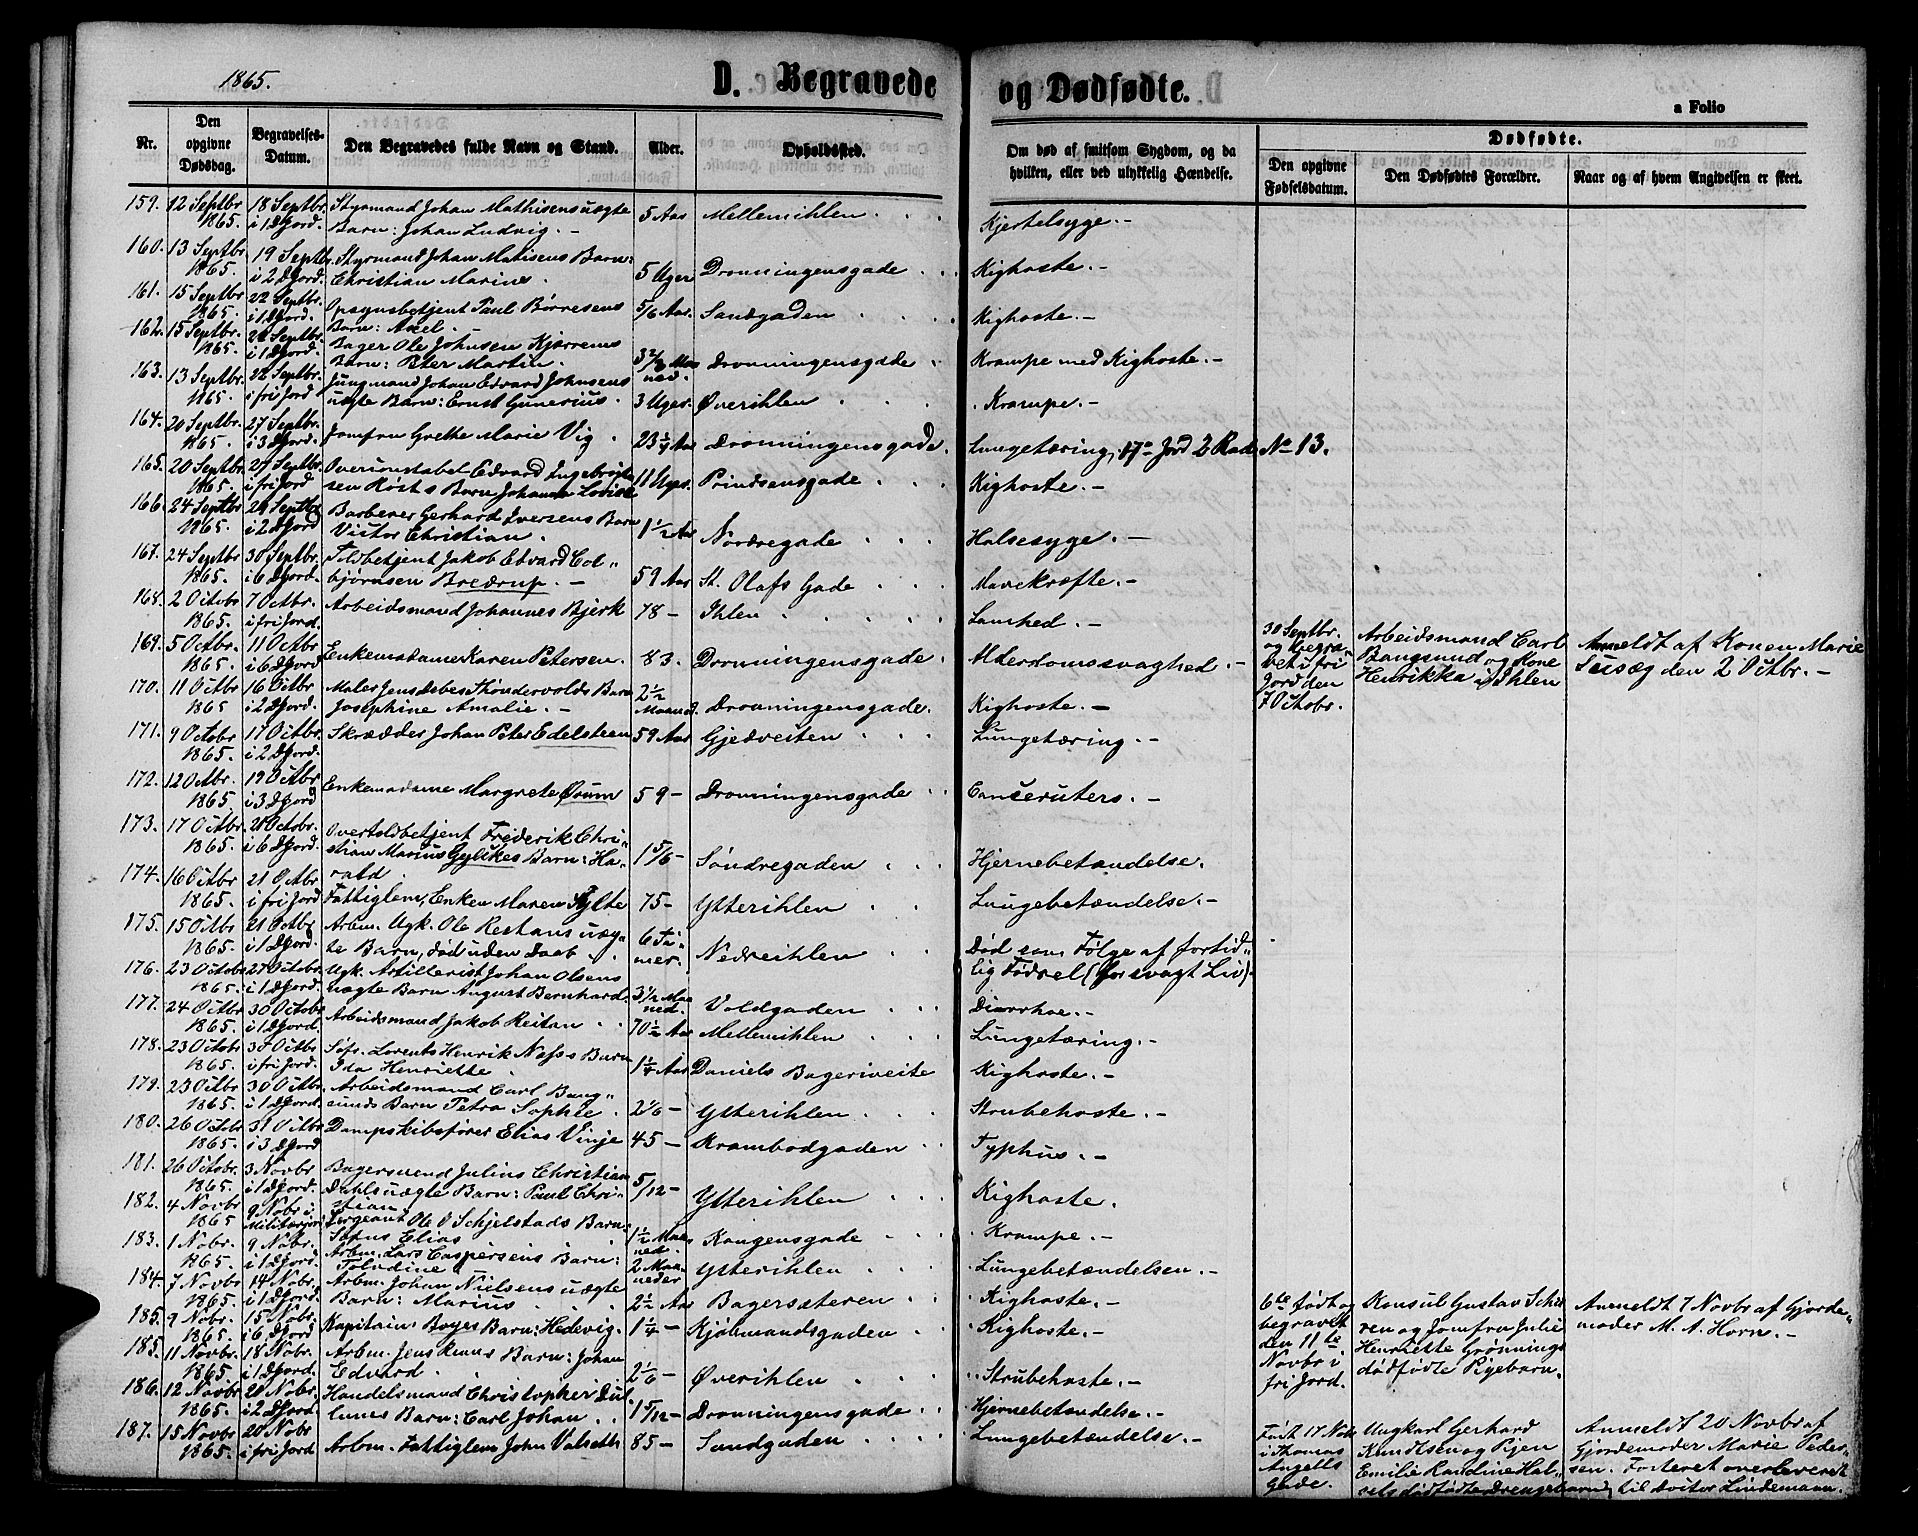 1865.
D. Begravede og Dødfødte.
a Folio
Nr.
Den opgivne Dødsdag.
Begravelses-Datum.
Den Begravedes fulde Navn og Stand.
Alder.
Opholdssted.
Om død af smitsom Sygdom, og da hvilken, eller ved ulykkelig Hændelse.
Dødfødte.
Den opgivne Fødselsdatum.
Den Dødfødtes Forældre.
Naar og af hvem Angivelsen er skeet.
159. 12 Septbr 1865. 18 Septbr. i 1 D Jord. Styrmand Johan Mathisens uægte Barn: Johan Ludvig. - 5 Aar Mellemihlen Kjertelsyge. -
160. 13 Septbr. 1865. 19 Septbr. i 2 D Jord. Styrmand Johan Matisens Barn: Christian Marine. 5 Uger Dronningensgade Kighoste. -
161. 15 Septbr 1865. 22 Septbr. i 1 D Jord. Opsynsbetjent Paul Börresens Barn: Axel. - 5/6 Aar. Sandgaden Kighoste. -
162. 15 Septbr. 1865. 22 Septbr. i 1 D Jord. Bager Ole Johnsen Kjørrems Barn: Peter Martin. Dronningensgade Krampe med Kighoste. -
163. 13 Septbr. 1865. 22 Septbr. i fri Jord Jungmand Johan Edvard Johnsens uægte Barn: Ernst Gunerius. 3 Uger. Øverihlen Krampe. -
164. 20 Septbr. 1865. 27 Septbr. i 3 D Jord. Jomfru Grethe Marie Vig. 23 1/4 Aar Dronningensgade. Lungetæring, 17de Jord 2 Rad No 13.
165. 20 Septbr. 1865. 27 Septbr. i fri Jord Overconstabel Edvard Ingebrigtsen Høsts Barn Johanna Lovise 11 Uger. Prindsensgade Kighoste. -
166. 24 Septbr 1865. 29 Septbr i 2 D Jord Barberer Gerhard Iversens Barn Victor Christian. 1 1/2 Aar Nordregade Halsesyge. -
167. 24 Septbr 1865. 30 Septbr. i 6 D Jord. Toldbetjent Jakob Edvard Colbjörnsen Bredrup. - 59 Aar St. Olafs Gade Mavekræfte. -
168. 2 Octobr 1865. 7 Octbr. i fri Jord. Arbeidsmand Johannes Bjerk 78 - Ihlen Lamhed. -
169. 5 Octbr. 1865. 11 Octbr i 6 D Jord Enkemadame Karen Petersen. 83. Dronningensgade Alderdomssvaghed -
30 Septbr. og begravet i fri Jord den 7 Octobr. Arbeidsmand Carl Bangsund og Kone Henrikka i Ihlen Anmeldt af Konen Marie den 2 Octbr. -
170. 11 Octbr 1865 16 Octbr. i 2 D Jord. Maler Jens Debes Barn Josephine Amalie. - 2 1/2 Maaned. Dronningensgade. Kighoste. -
171. 9 Octobr 1865. 17 Octbr. i 2 D Jord. Skrædder Johan Peter Edelsteen 59 Aar Gjedveiten Lungetæring. -
172. 12 Octbr. 1865. 19 Octbr i 3 D Jord Enkemadame Margrete Örum 59 - Dronningensgade Canceruters. -
173. 17 Octbr. 1865. 21 Octobr. i 6 D Jord. Overtoldbetjent Frederik Christian Marius Gylckes Barn: Harald. 1 5/6 - Söndregaden Hjernebetændelse.
174. 16 Octbr 1865. 21 Octbr i fri Jord Fattiglem, Enken Maren Sylte 75 - Ytterihlen Lungebetændelse. -
175. 15 Octbr 1865. 21 Octbr i 1 D Jord. Arbm. Ugk. Ole Restans uægte Barn, död uden Daab 6 Timer. Nedreihlen Död som Følge af fortidlig Födsel (for svagt Liv).
176. 23 Octobr 1865. 27 Octobr. i 1 D Jord. Ugk. Artillerist Johan Olsens uægte Barn August Bernhard. 3 1/2 Maaned. Voldgaden Diarrhoe. -
177. 24 Octbr 1865. 30 Octobr i 1 D Jord. Arbeidsmand Jakob Reitan 70 1/2 Aar Mellemihlen Lungetæring. -
178. 23 Octobr 1865. 30 Octbr i fri Jord. Söfr. Lorents Henrik Næss Barn Ida Henriette 1 1/4 Aar Daniels Bageriveite Kighoste. -
179. 23 Octbr 1865. 30 Octbr. i 1 D Jord. Arbeidsmand Carl Bangsunds Barn Petra Sophie. 2 1/6 - Ytterihlen Strubehoste. -
180. 26 Octbr 1865. 31 Octbr i 3 D Jord Dampskibsförer Elias Vinje 45 - Krambodgaden Typhus. -
181. 26 Octobr. 1865. 3 Novbr i 1 D Jord. Bagersvend Julius Christian Dahls uægte Barn: Paul Christian. 5/12 - Ytterihlen Kighoste.
182. 4 Novbr 1865 9 Nobr i Militærjord Sergeant Ole O Schjelstads Barn: Elias 1 1/2 Maaned. Kongensgade Krampe. -
183. 1 Nobr. 1865. 9 Nobr. i 1 D Jord. Arbm. Lars Caspersens Barn: 2 Maaneder Ytterihlen Lungebetændelsen. -
184. 7 Novbr 1865. 14 Nobr. i 1 D Jord. Arbm. Johan Nielsens uægte Barn: Marius 2 1/2 Aar Bagersæteren Kighoste. -
185. 9 Nobr. 1865. 15 Nobr. i 6 D Jord Kapitain Boyes Barn: Hedevig. 1 1/4 - Kjöbmandsgaden Kighoste. -
6te født og begravet den 11te Novbr i fri Jord. Konsul Gustav og Jomfru Julie Henriette Grönnings dödfödte Pigebarn. Anmeldt 7 Novbr af Gjordemoder M. A. Horn. -
185. 11 Novbr. 1865. 18 Nobr. i 1 D Jord. Arbm. Jens Barn: Johan Edvard. 2 1/6 - Øverihlen Strubehoste. -
186. 12 Novbr 1865. 20 Nobr. i 2 D Jord. Handelsmand Christopher Barn: Carl Johan 1 5/12 - Dronningensgade Hjernebetændelse. -
187. 15 Novbr 1865. 20 Nobr i fri Jord Arbm. Fattiglem John Valseth 85 - Sandgaden Lungebetændelse. -
Født 17 Nobr i Thomas Angells Gade. Ungkarl Gerhard Knudtsen og Pigen Emilie Randine dödfödte Drengebarn. Anmeldt 20 Novbr af Gjordemoder Marie Pedersen. Fosteret overleveret til Doktor Lindemann.